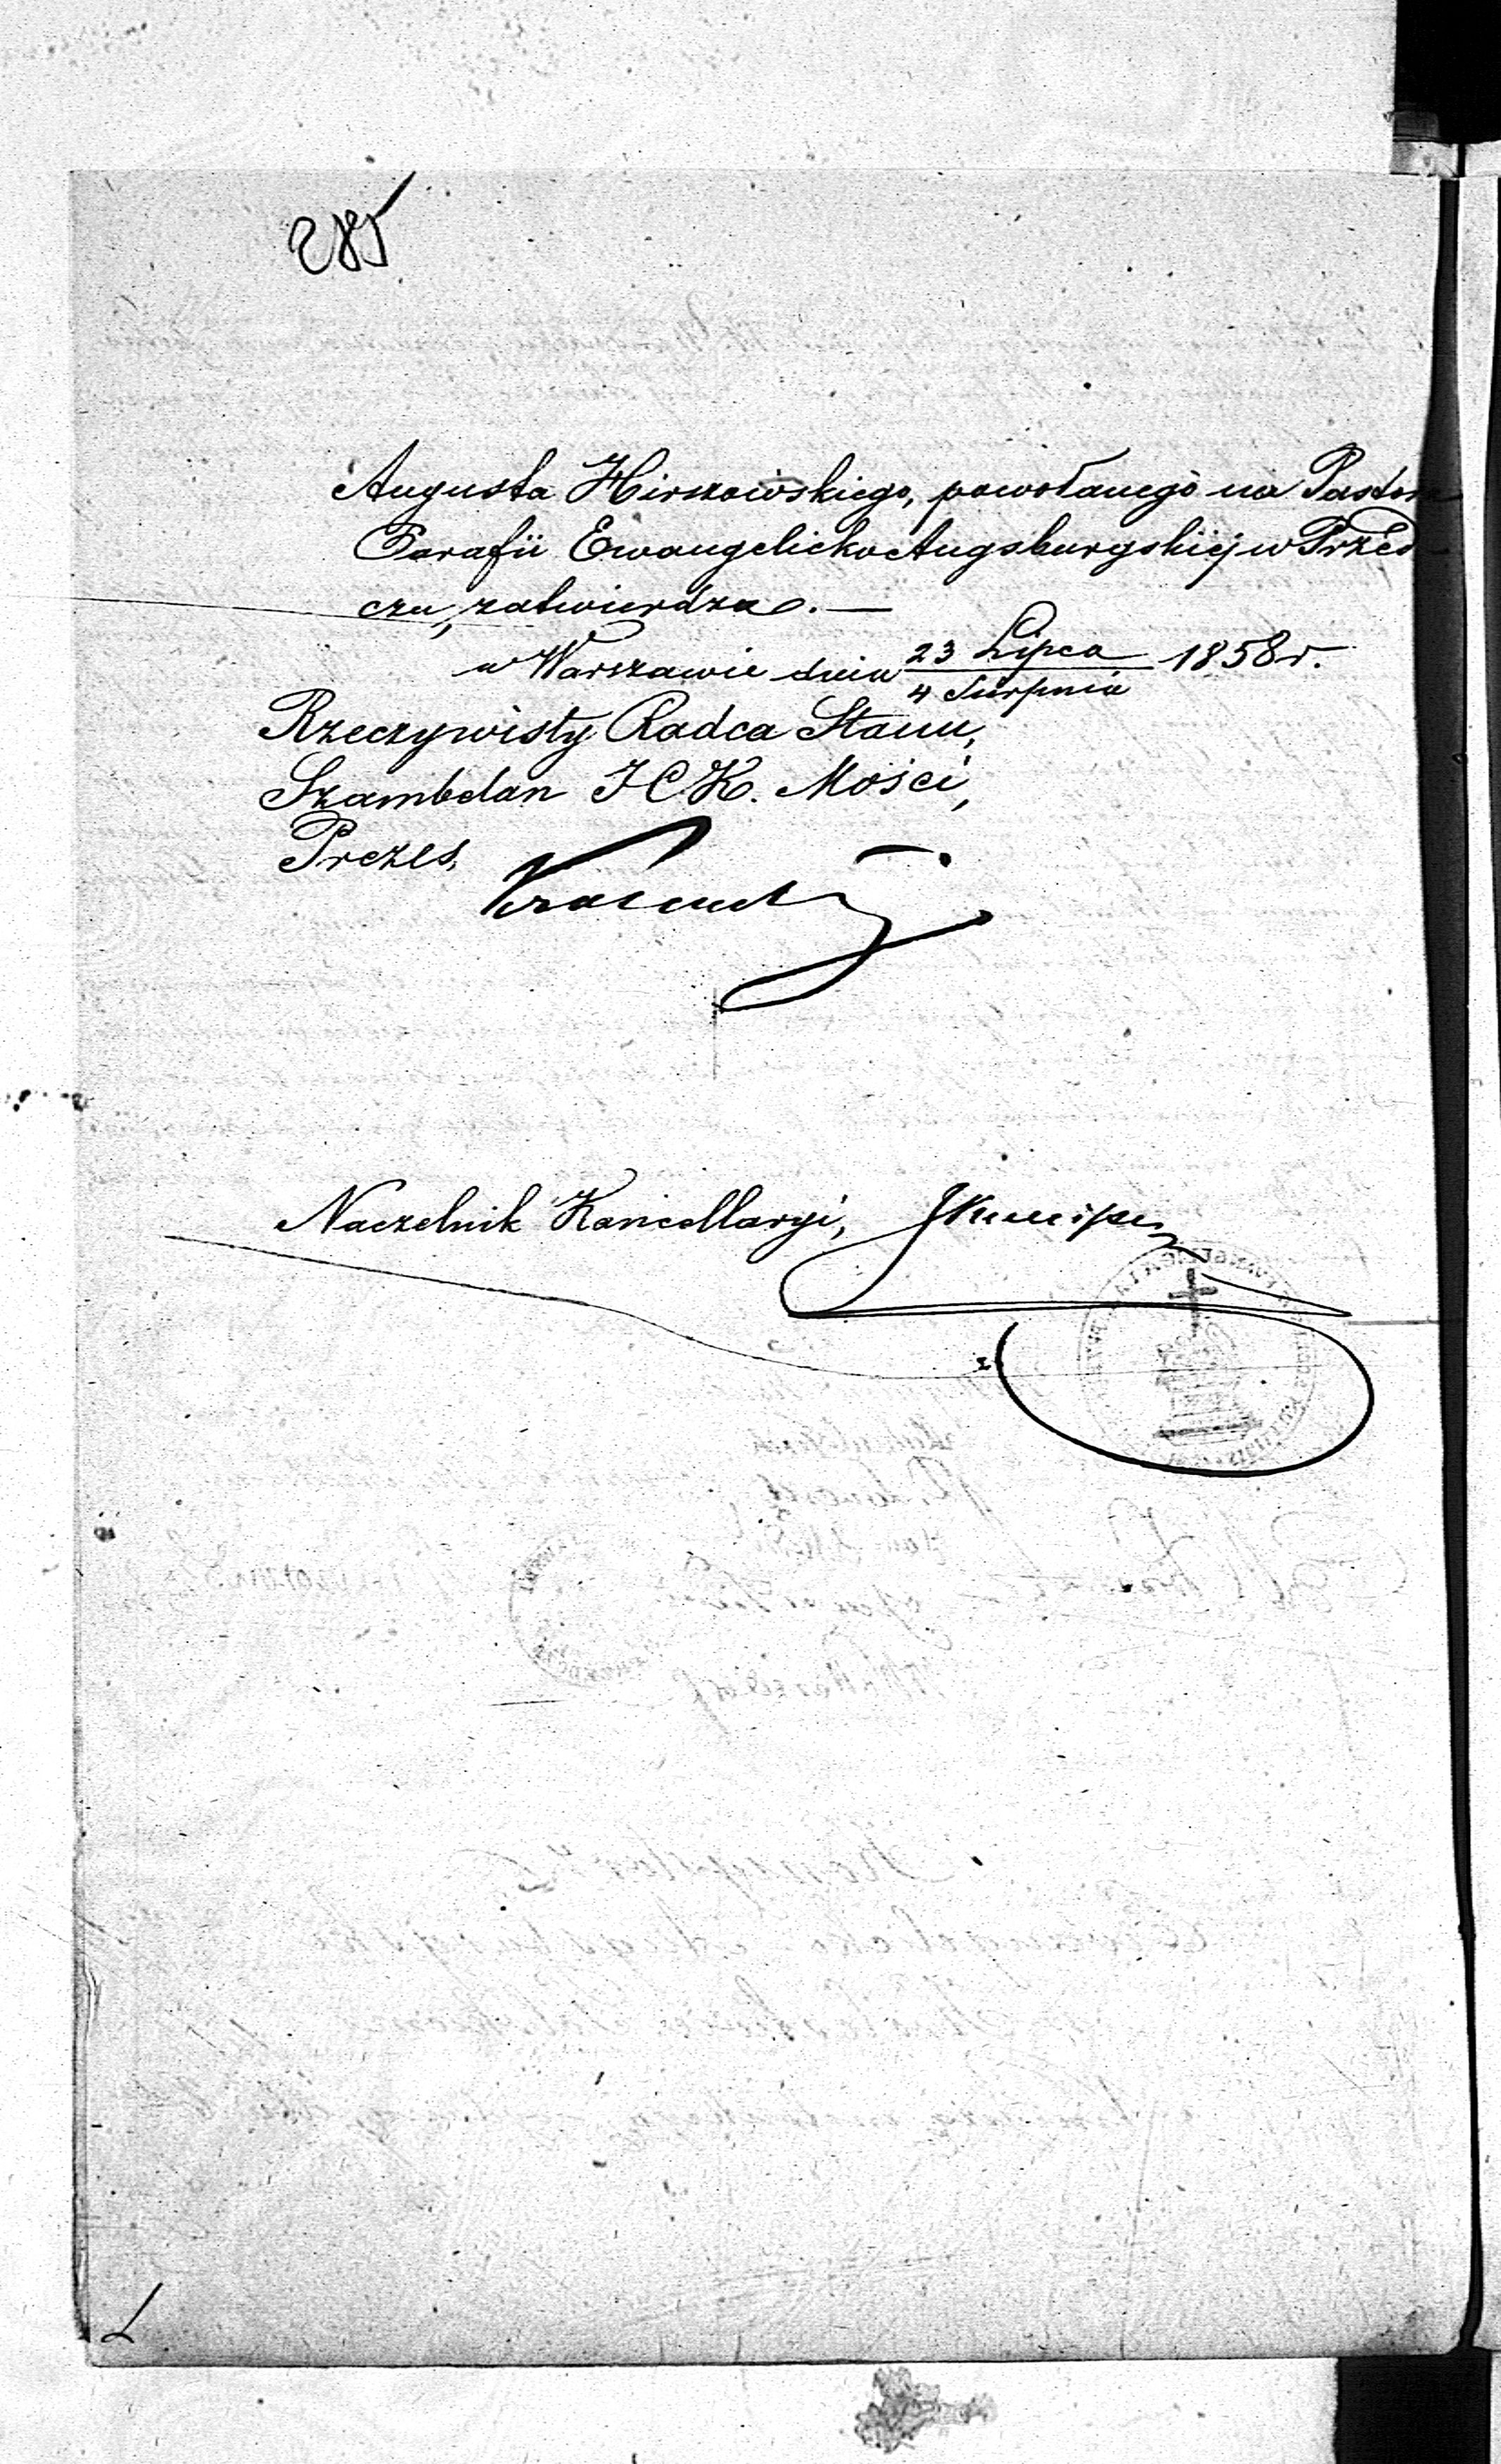 285
Augusta Hirszowskiego, powołanego na Pastora
Parafii Ewangelicko Augsburgskiej w Przed-
czu, zatwierdza. —
w Warszawie dnia 23 Lipca / 4 Sierpnia 1858 r.
Rzeczywisty Radca Stanu,
Szambelan J C K. Mości,
Prezes,
Naczelnik Kancellaryi,